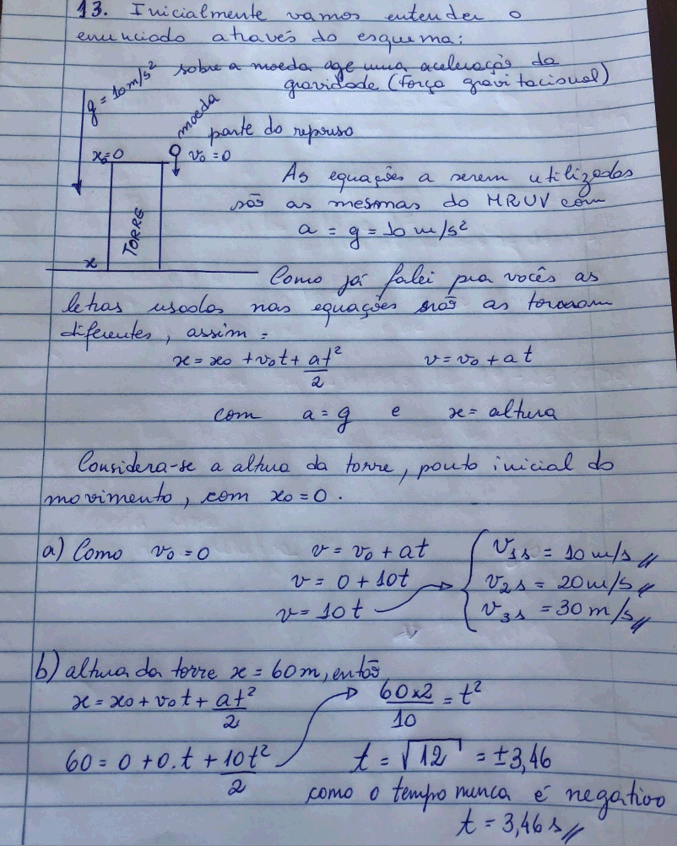 13. Inicialmente vamos entender o
enunciado através do esquema:
sobre a moeda age uma aceleração da
gravidade (força gravitacional)
g = 10 m/s²
moeda
parte do repouso
x₀=0
v₀=0
TORRE
x
As equações a serem utilizadas
são as mesmas do MRUV com
a = g = 10 m/s²
Como já falei pra vocês as
letras usadas nas equações não as tornam
diferentes, assim:
x = x₀ + v₀t + at²/2 v = v₀ + at
com a = g e x = altura
Considera-se a altura da torre, ponto inicial do
movimento, com x₀ = 0.
a) Como v₀ = 0 v = v₀ + at
v = 0 + 10t
v = 10t
v₁ₛ = 10 m/s
v₂ₛ = 20 m/s
v₃ₛ = 30 m/s
b) altura da torre x = 60m, então
x = x₀ + v₀t + at²/2
60 = 0 + 0.t + 10t²/2
60x2/10 = t²
t = √12 = ±3,46
como o tempo nunca é negativo
t = 3,46 s